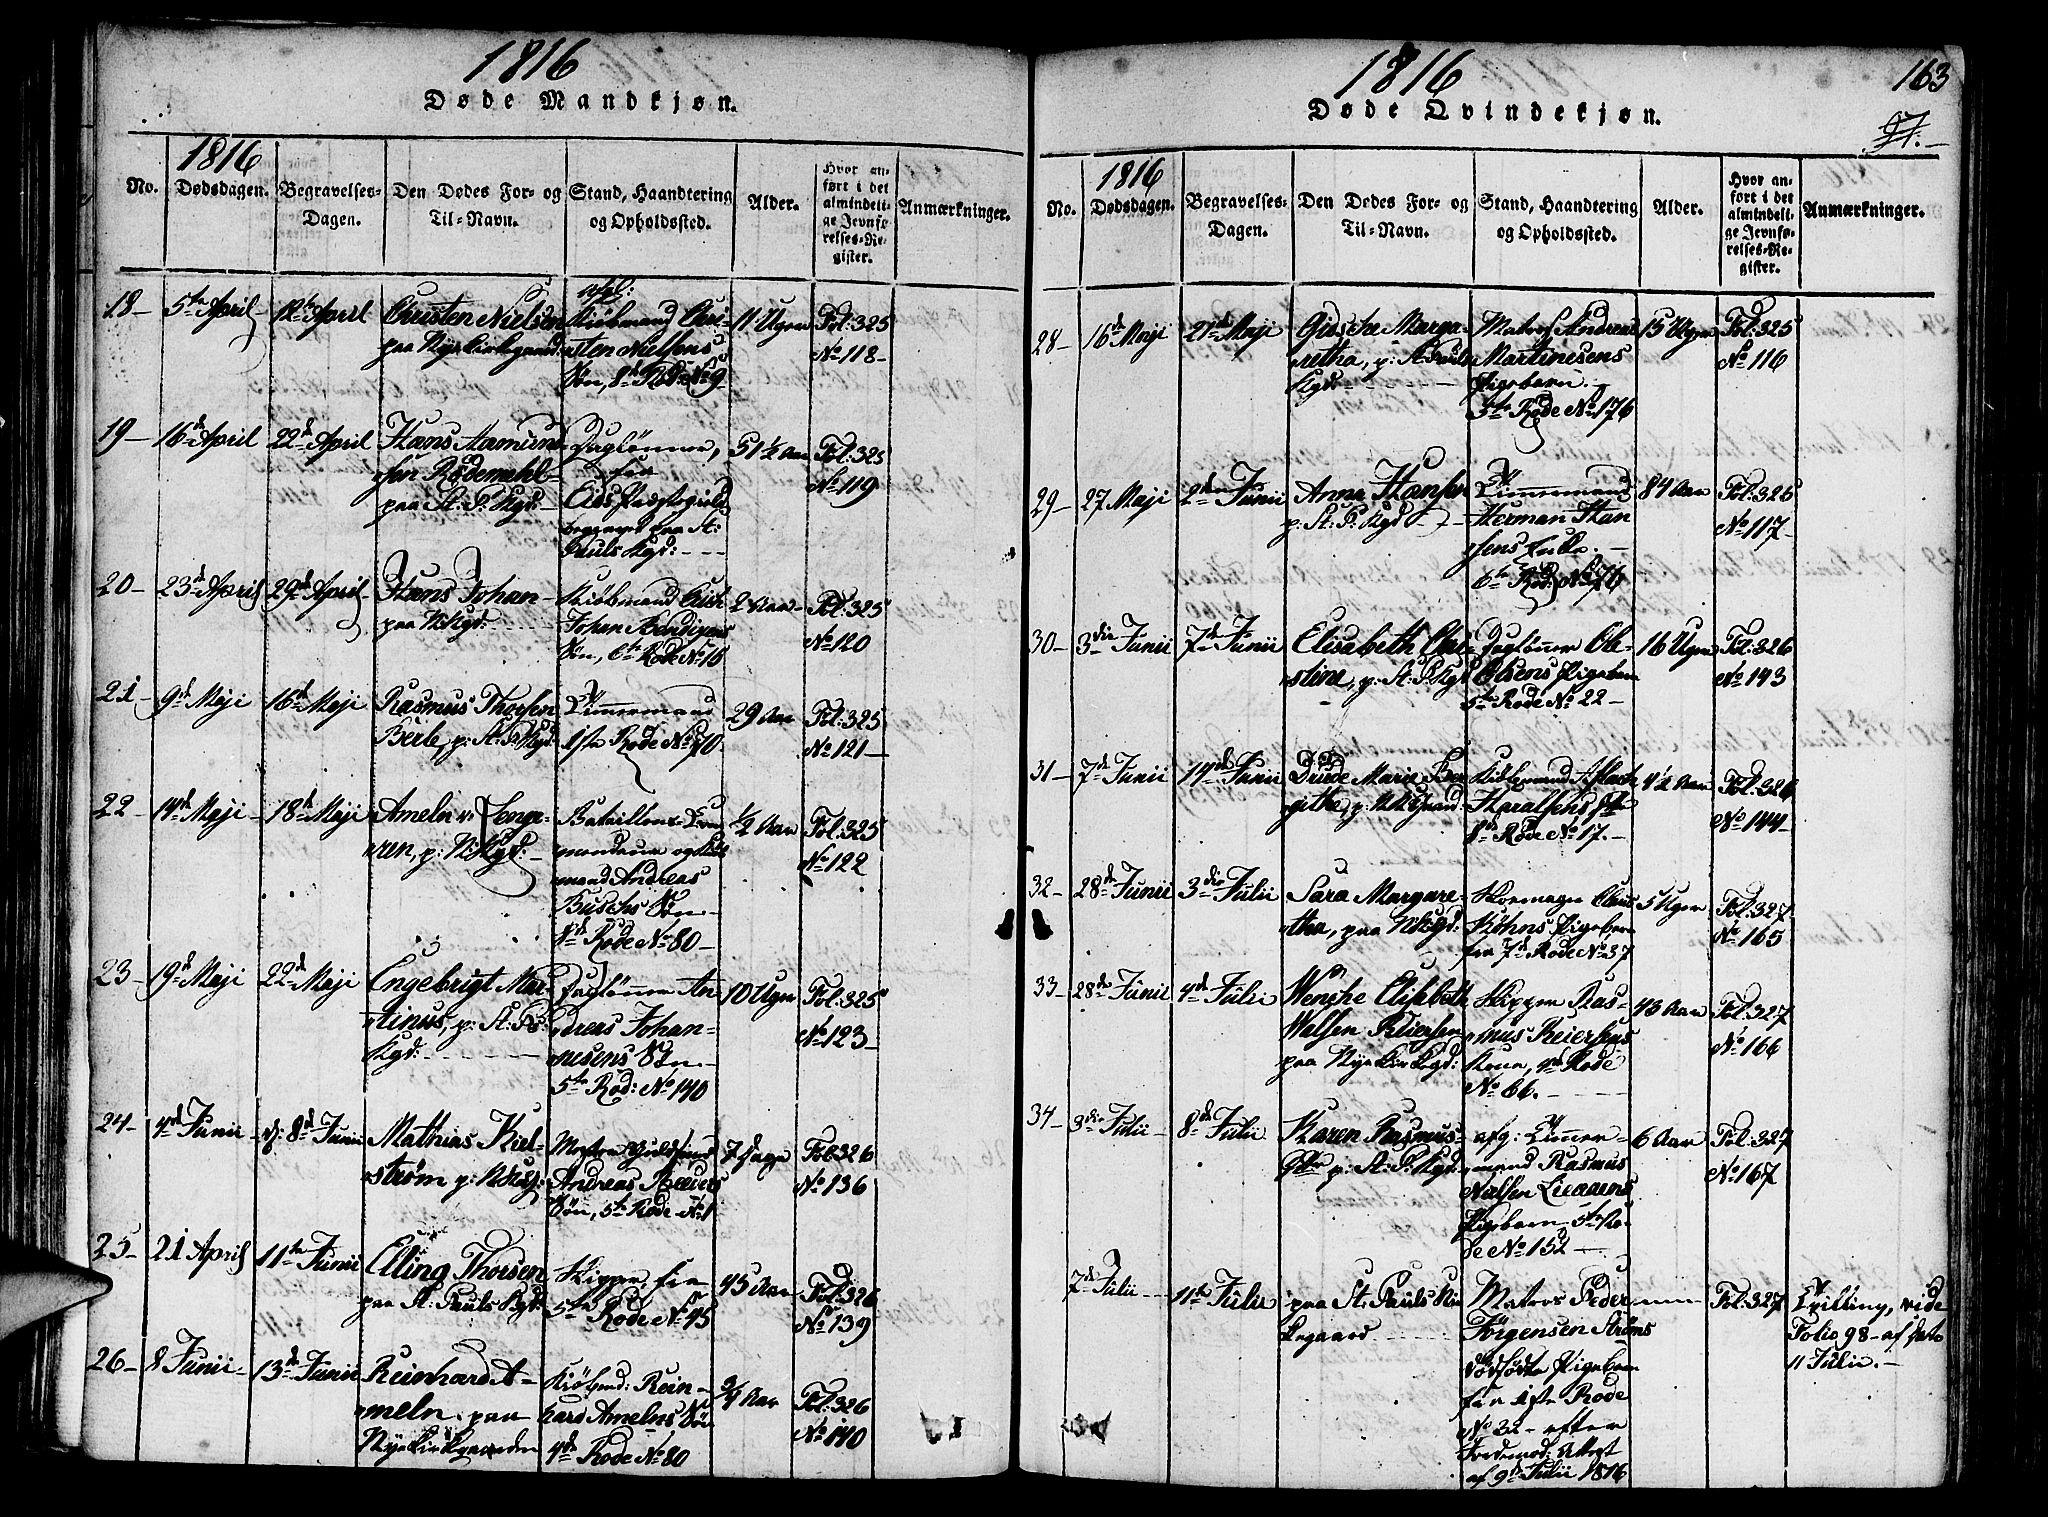 1816
Døde Mandkjøn.
1816
No.
Dødsdagen.
Begravelses-
Dagen.
Den Dødes For- og
Til-Navn.
Stand, Haandtering
og Opholdssted.
Alder.
Hvor an-
ført i det
almindeli-
ge Jevnfø-
relses-Re-
gister.
Anmærkninger.
18- 5te April 12te April Christen Nielsen
paa Nye Kirkegaard
afg:
Kiöbmand Chri-
sten Nielsens
Sön, 8de Rode No 9
11 Uger Fol: 325
No 118-
19- 16de April 22de April Hans Aamund-
sen Rödemahl-
paa St. P. Kgd.
Daglönner,
fra
begravet paa St:
Pauls Kgd:
51½ Aar Fol: 325
No 119
20- 23de April 29de April Hans Johan-
paa N Kgd.
Kiöbmand Erich
Johan Bendixens
Sön, 6te Rode No 16
2 Aar Fol: 325
No 120
21- 9de Maji 16de Maji Rasmus Thorsen
Berle, p: St. P. Kgd.
Timmermand
1ste Rode No 70
29 Aar Fol: 325
No 121-
22- 14de Maji 18de Maji Ameln
p: N Kgd.
Batallions-
og
mand Andreas
Buschs Sön
4de Rode No 80-
½ Aar Fol: 325
No 122
23- 19de Maji 22de Maji Engebrigt Mar-
tinus, p: St. P.
Kgd.
Daglönner An-
dreas Johan-
nesens Sön
5te Rod: No 140
10 Uger Fol: 325
No 123-
24- 4de Junii 8de Junii Mathias Kiel-
ström p: N Kg:
Andreas
Sön, 5te Rode No 1
7 Dage Fol: 326
No 136
25- 21 April 11te Junii Elling Thorsen
paa St: Pauls Kgd:
Skipper fra
5te Rode No 45
45 Aar Fol: 326
No 139
26- 8 Junii 13de Junii Reinhard A-
meln paa
Nye Kirkegaarden
Kiöbmd: Rein-
hard Amelns Sön
4de Rode No 80
¾ Aar Fol: 326
No 140
1816
Døde Qvindekjøn.
163
97.-
1816
No.
Dødsdagen.
Begravelses-
Dagen.
Den Dødes For- og
Til-Navn.
Stand, Haandtering
og Opholdssted.
Alder.
Hvor an-
ført i det
almindeli-
ge Jevnfø-
relses-Re-
gister.
Anmærkninger.
28- 16de Maji 21de Maji Gidsche Marga-
retha, p: St. Pauls
Kgd
Matros Andreas
Martinesens
Pigebarn
5te Rode No 176
15 Uger Fol: 325
No 116
29- 27 Maji 2den Junii Anna Hansen
p: St. P. Kgd
Timmermand
Herman Han-
sens Enke.
6te Rod: No 76
84 Aar Fol: 325
No 117-
30- 3die Junii 7de Junii Elisabeth Chri-
stine, p: St P Kgd
Daglönner Ole
Olsens Pigebarn
5te Rode No 22-
16 Uger Fol: 326
No 143
31- 7de Junii 14de Junii Durde Marie Ber-
githe, p: N Kgaard:
Kiöbmand Aslach
Haralsens
8de Rode No 17.-
4½ Aar Fol: 326
No 144-
32- 28de Junii 3die Julii Sara Margare-
tha, paa N Kgd:
Skomager Claus
Köhns Pigebarn
fra 7de Rode No 37
5 Uger Fol: 327
No 165
33- 28de Junii 4de Julii Wenche Elisabeth
Walsen Reiersen
paa Nye Kirkegd:
Skipper Ras-
mus Reiersens
Kone, 4de Rode
No 66.-
43 Aar Fol: 327
No 166
34- 3die Julii 8de Julii Karen Rasmus-
p: St. P. Kgd.
afg: Timmer-
mand Rasmus
Nielsen
Pigebarn 5te Ro-
de No 152-
6 Aar Fol: 327
No 167
7de Julii 11te Julii paa St. Pauls Kir-
kegaard
Matros Peder
Jörgensen Ströms
dödfödte Pigebarn
fra 1ste Rode
No 22- efter
Attest
af 9de Julii 1816
Fol: 327 Tvilling, vide
Folio 98- af Dato
11 Julii.-